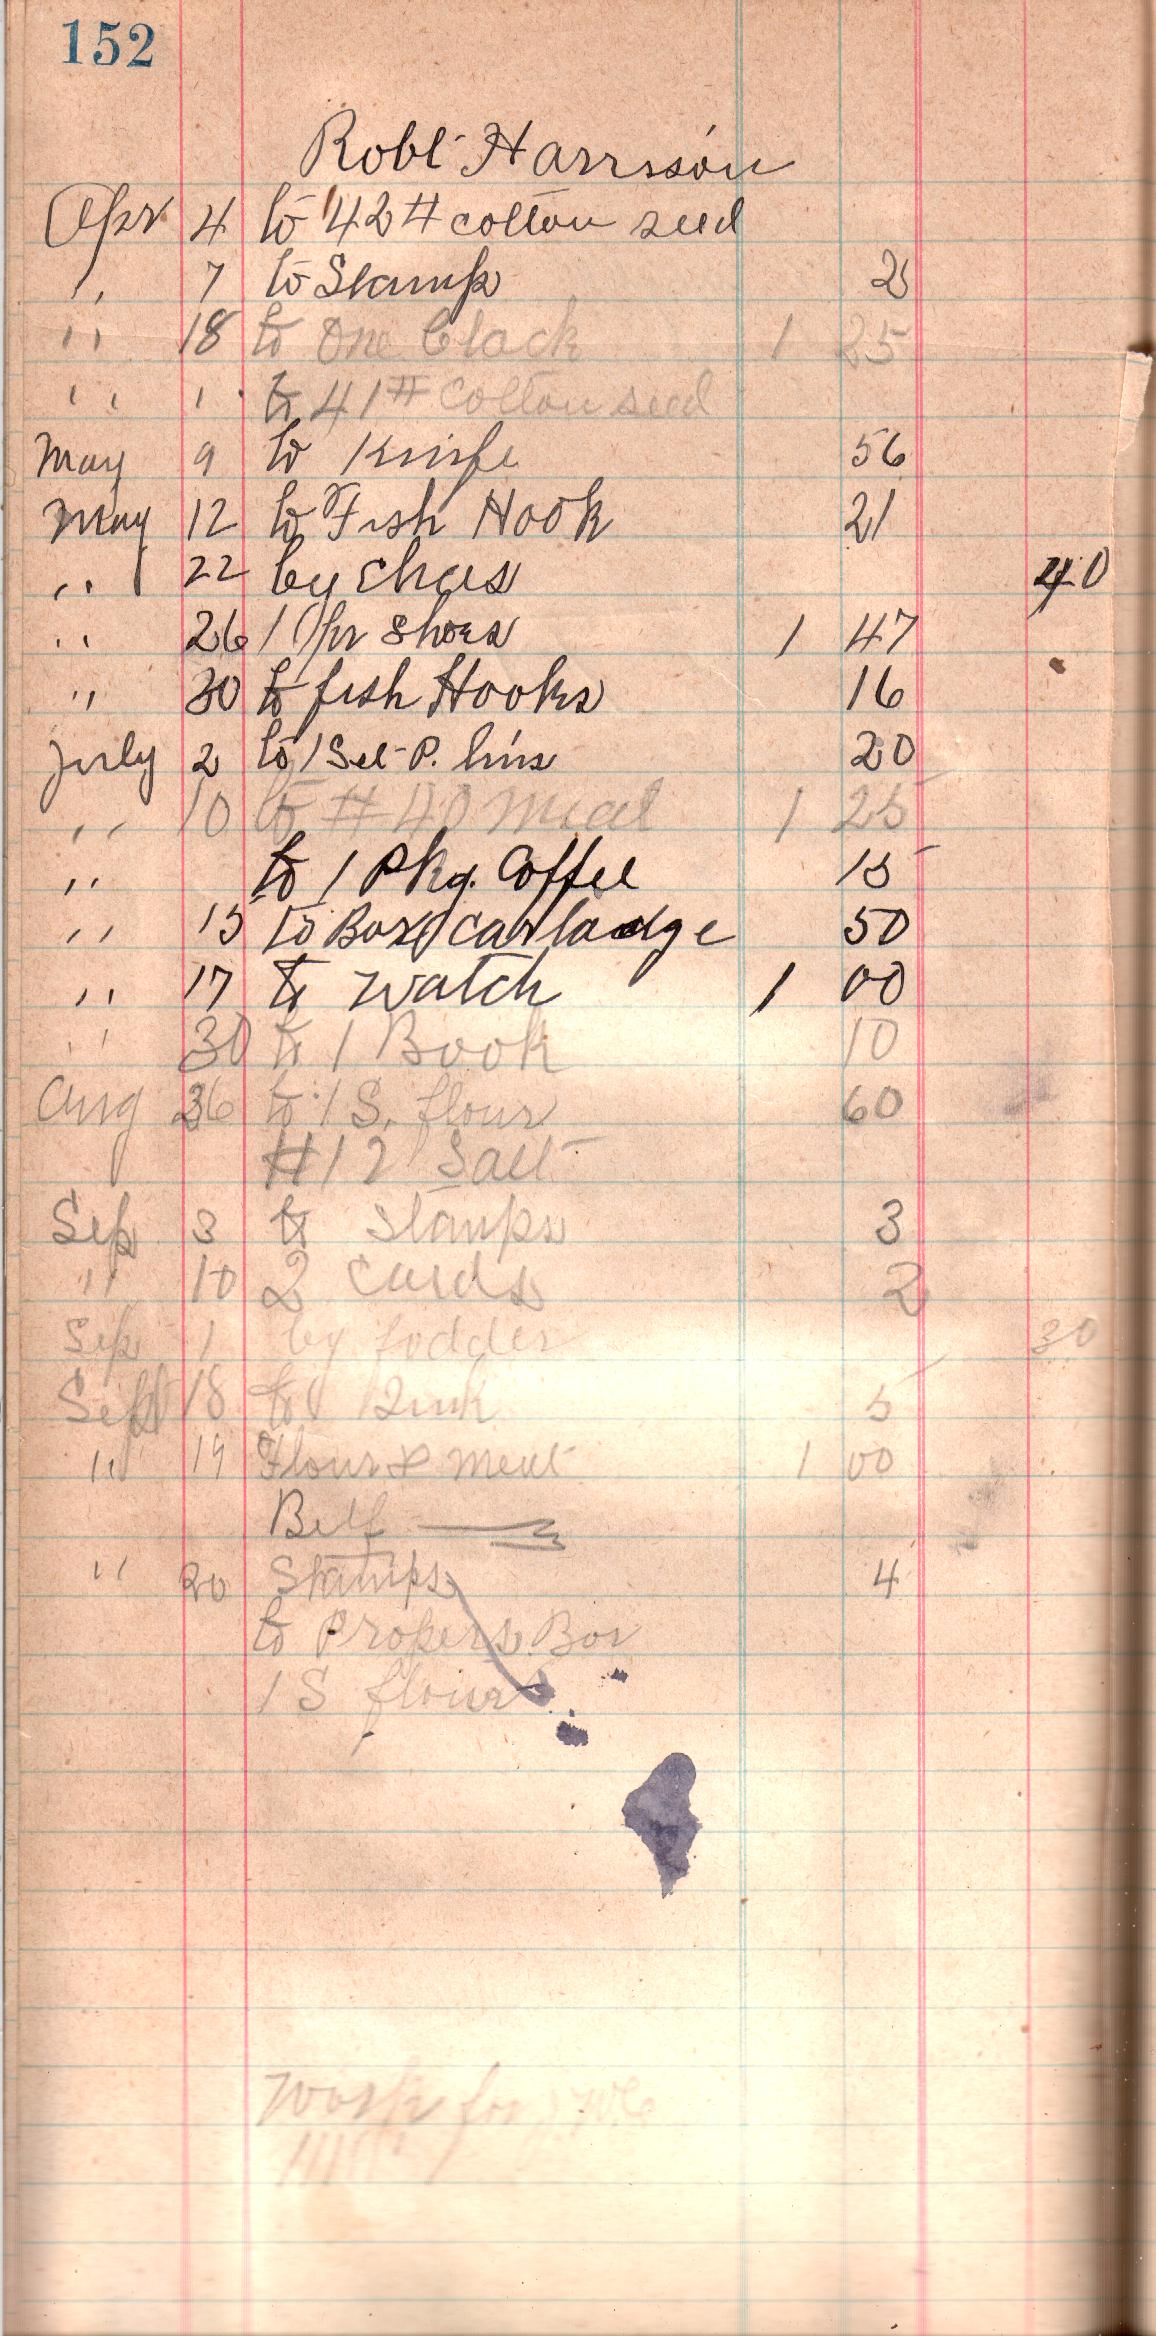 152
Robt Harrison
Apr 4 to 42 # cotton seed
" 7 to Stamp 2
" 18 to One Clock 1 25
" 1 to 41 # cotton seed
May 9 to Knife 56
May 12 to Fish Hook 21
" 22 by Chas 40
" 26 1 pr Shoes 1 47
" 30 to fish Hooks 16
July 2 to 1 Set P. 20
" 10 to # 40 Meal 1 25
" to 1 Pkg. Coffee 15
" 15 to Box Cartladge 50
" 17 to watch 1 00
" 30 to 1 Book 10
Aug 26 to 1 S. flour 60
# 12 Salt
Sep 3 to Stamps 3
" 10 2 Cards 2
Sep 1 by fodder 30
Sept 18 to 5
" 19 Flour & Meat 1 00
Belt
" 20 Stamps 4
to Box
1 S flour
Work for
1111